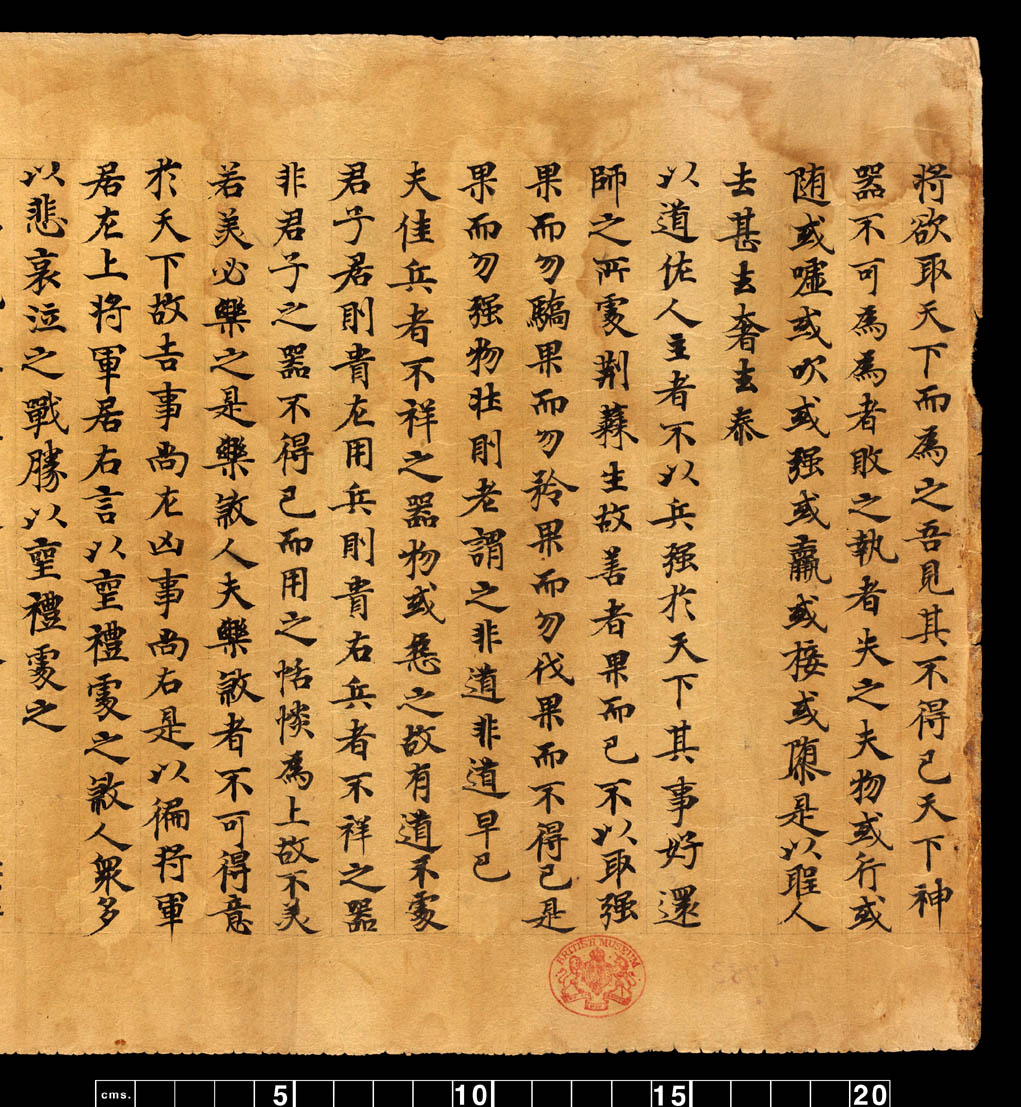 将欲取天下而為之吾見其不得已天下神
器不可為為者敗之執者失之夫物或行或
随或嘘或吹或强或羸或接或隳是以聖人
去甚去奢去泰
以道佐人主者不以兵强於天下其事好還
師之所處荆蕀生故善者果而已不以取强
果而勿驕果而勿矜果而勿伐果而不得已是
果而勿强物壮則老謂之非道非道早已
夫佳兵者不祥之器物或惡之故有道不處
君子居則貴左用兵則貴右兵者不祥之器
非君子之器不得已而用之恬惔為上故不美
若美必樂之是樂煞人夫樂煞者不可得意
於天下故吉事尚左凶事尚右是以偏将軍
居左上将軍居右言以喪禮處之煞人衆多
以悲哀泣之戰勝以喪禮處之
BRITISH MUSEUM
cms. 5 10 15 20